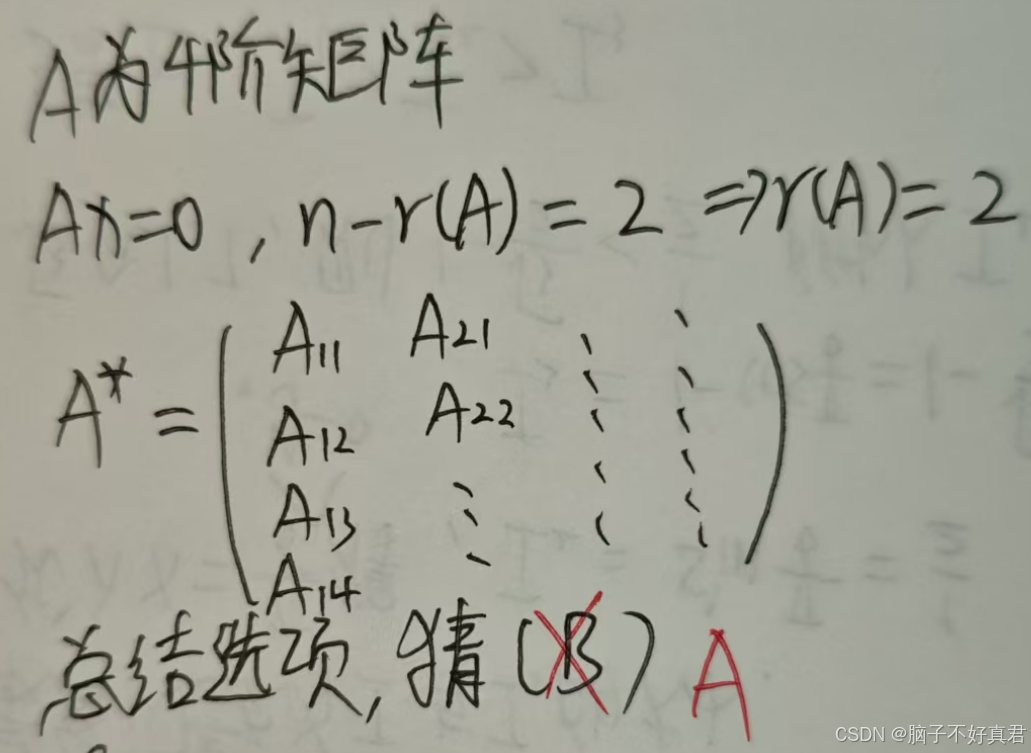 A为4阶矩阵
Ax=0, n-r(A)=2 ⇒r(A)=2
A* = ( A11 A21
A12 A22
A13
A14 )
总结选项,猜(B) A
CSDN @脑子不好真君